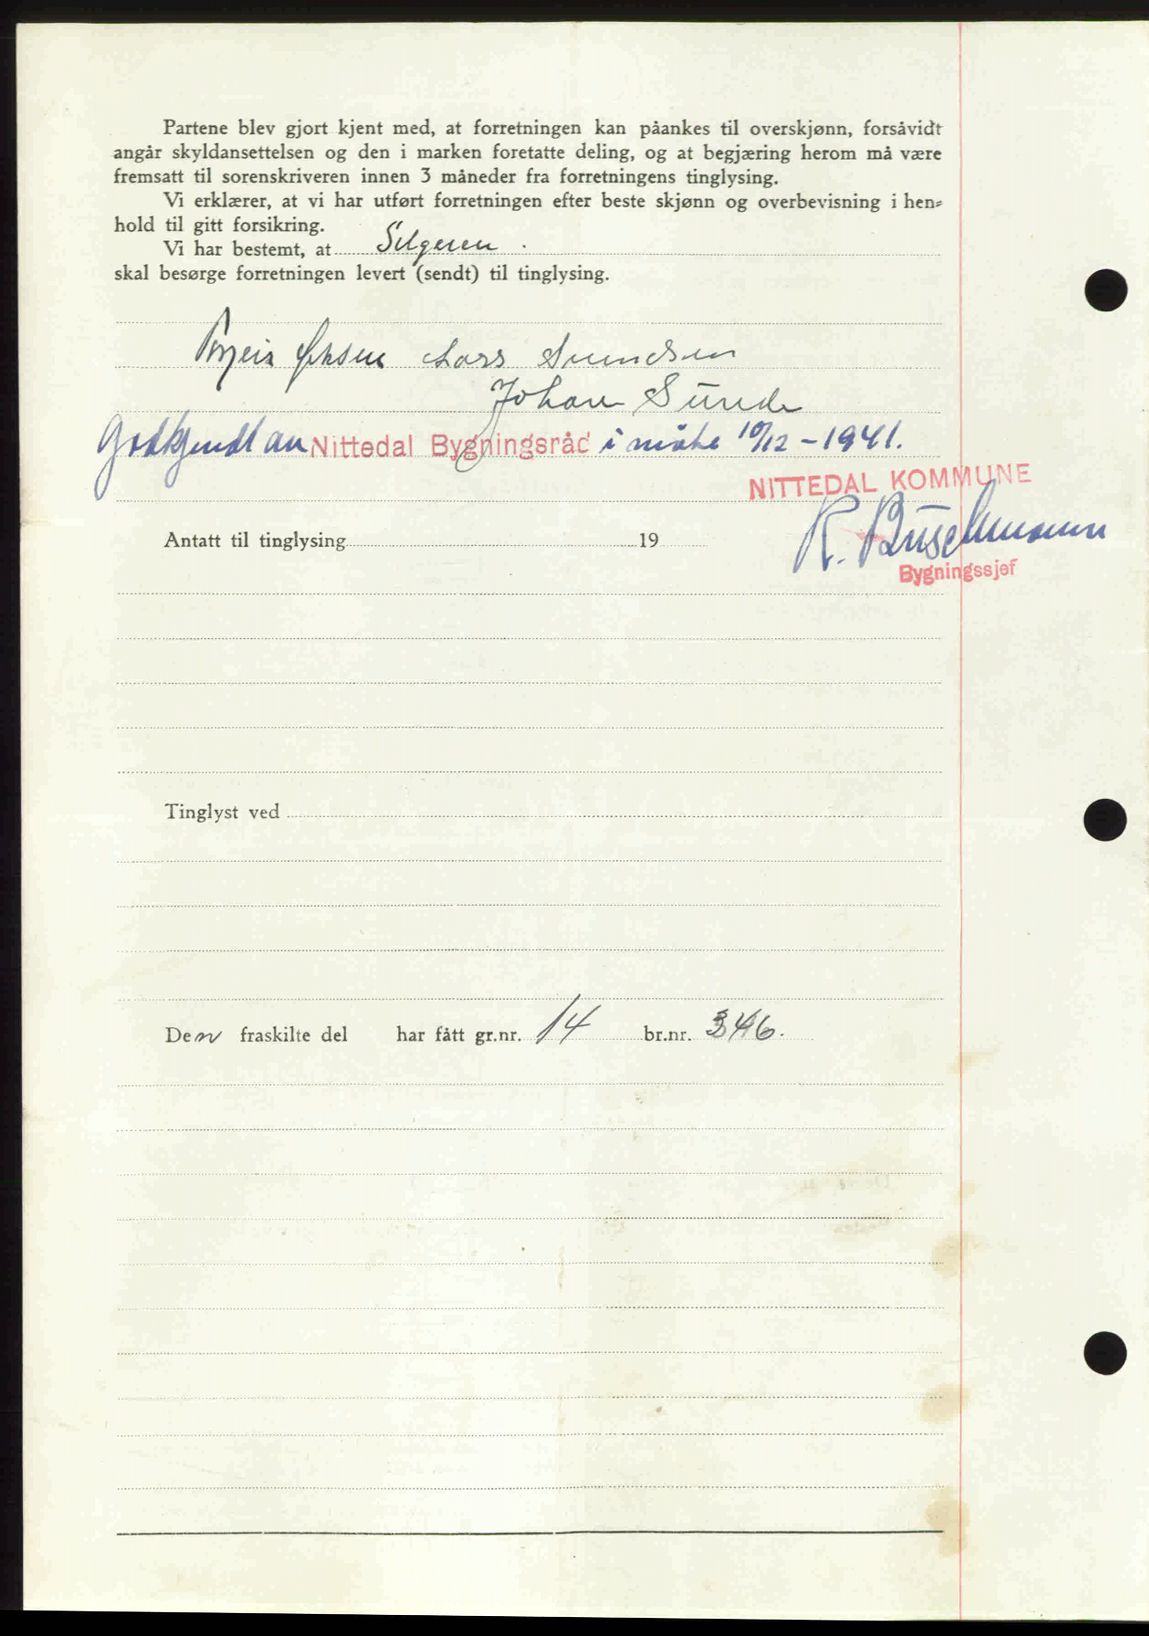 Partene blev gjort kjent med, at forretningen kan påankes til overskjønn, forsåvidt
angår skyldansettelsen og den i marken foretatte deling, og at begjæring herom må være
fremsatt til sorenskriveren innen 3 måneder fra forretningens tinglysing.
Vi erklærer, at vi har utført forretningen efter beste skjønn og overbevisning i hen-
hold til gitt forsikring.
Vi har bestemt, at Selgeren .
skal besørge forretningen levert (sendt) til tinglysing.
Lars
Johan Sunde
Godkjendt av Nittedal Bygningsråd i møte 10/12 - 1941.
NITTEDAL KOMMUNE
Antatt til tinglysing 19
R.
Bygningssjef
Tinglyst ved
Den fraskilte del har fått gr.nr. 14 br.nr. 346.